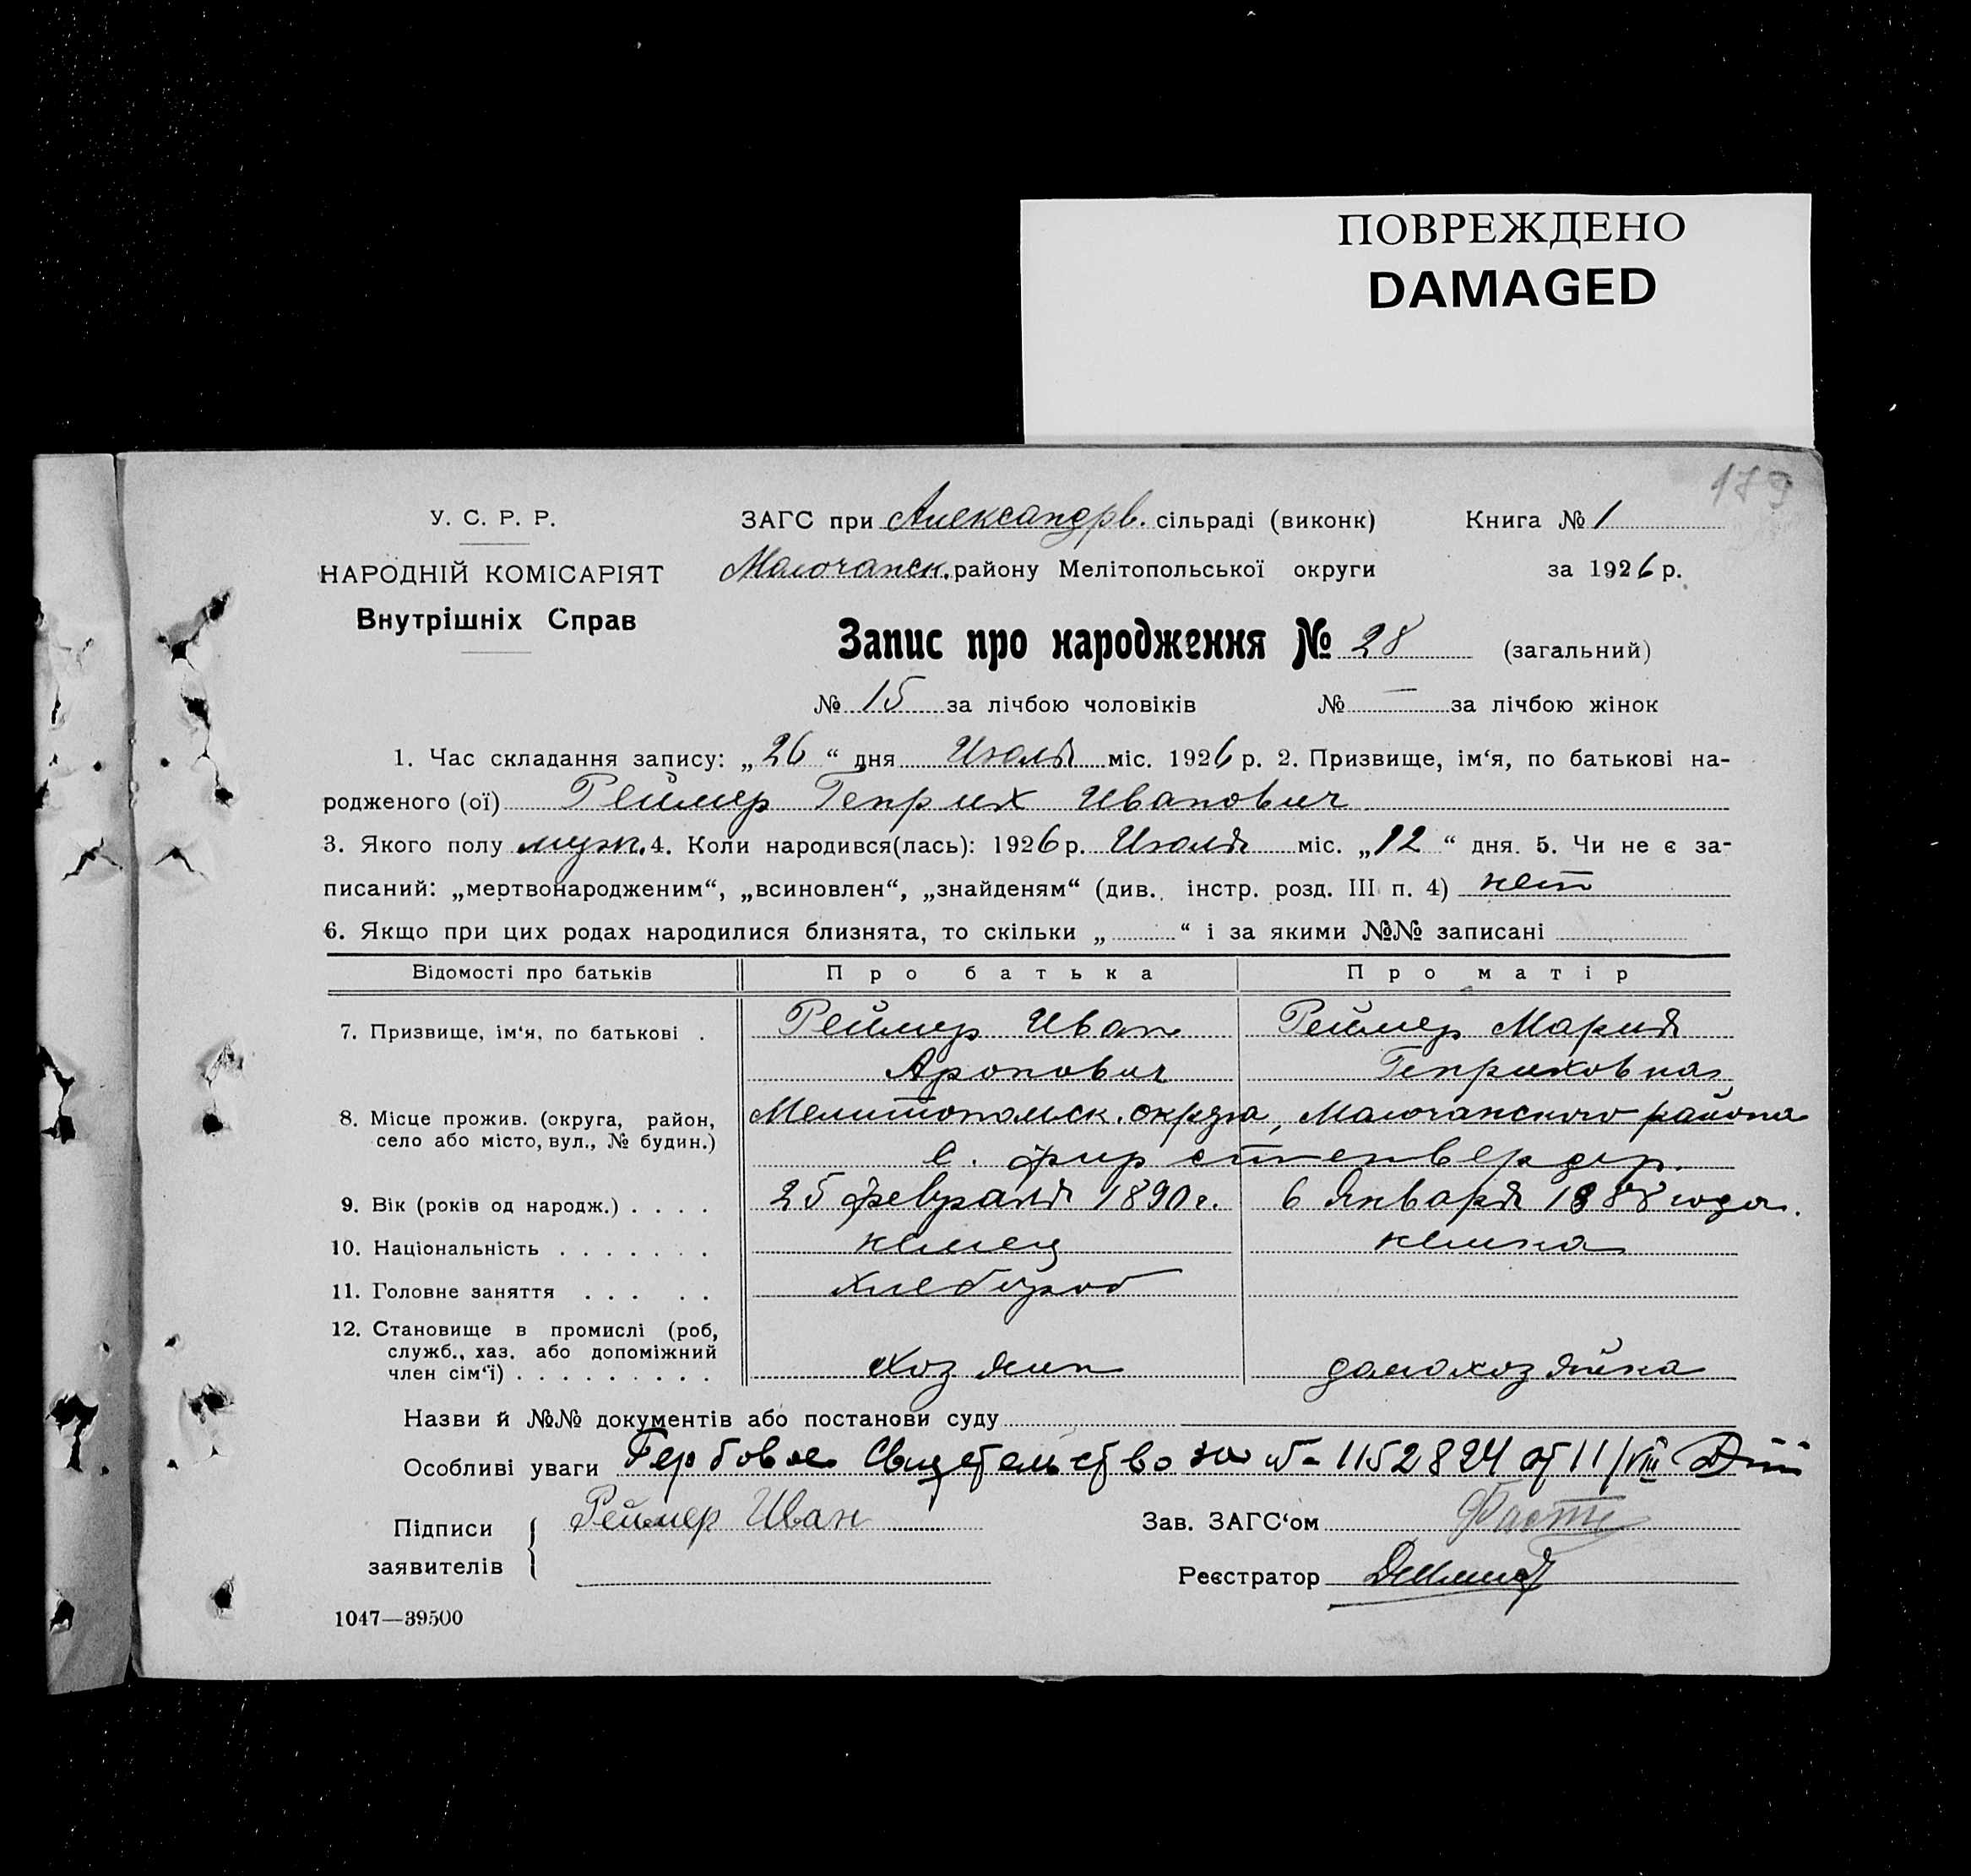 ПОВРЕЖДЕНО
DAMAGED
179
У. С. Р. Р.
НАРОДНІЙ КОМІСАРІЯТ
Внутрішніх Справ
ЗАГС при Александрв. сільраді (виконк) Книга № 1
Молочанск. району Мелітопольської округи за 1926 р.
Запис про народження № 28 (загальний)
№ 15 за лічбою чоловіків № — за лічбою жінок
1. Час складання запису: „26“ дня Июля міс. 1926 р. 2. Призвище, ім‘я, по батькові на-
родженого (ої) Реймер Генрих Иванович
3. Якого полу муж. 4. Коли народився(лась): 1926 р. Июля міс. „12“ дня. 5. Чи не є за-
писаний: „мертвонародженим“, „всиновлен“, „знайденям“ (див. інстр. розд. III п. 4) нет
6. Якщо при цих родах народилися близнята, то скільки „ “ і за якими №№ записані
Відомості про батьків Про батька Про матір
7. Призвище, ім‘я, по батькові . Реймер Иван Реймер Мария
Аронович Генриховна
8. Місце прожив. (округа, район, село або місто, вул., № будин.) Мелитопольск. округа, Молочанского района
с. Фирстенвердер.
9. Вік (років од народж.) . . . . 25 февраля 1890 г. 6 Января 1888 года.
10. Національність . . . . . . . немец немка
11. Головне заняття . . . . . хлебороб
12. Становище в промислі (роб,
служб., хаз. або допоміжний
член сім‘ї) . . . . . . . . . хозяин домохозяйка
Назви й №№ документів або постанови суду
Особливі уваги Гербовое Свидетельство за № 1152824 от 11/VIII
Підписи заявителів { Реймер Иван
Зав. ЗАГС‘ом
Реєстратор
1047—39500